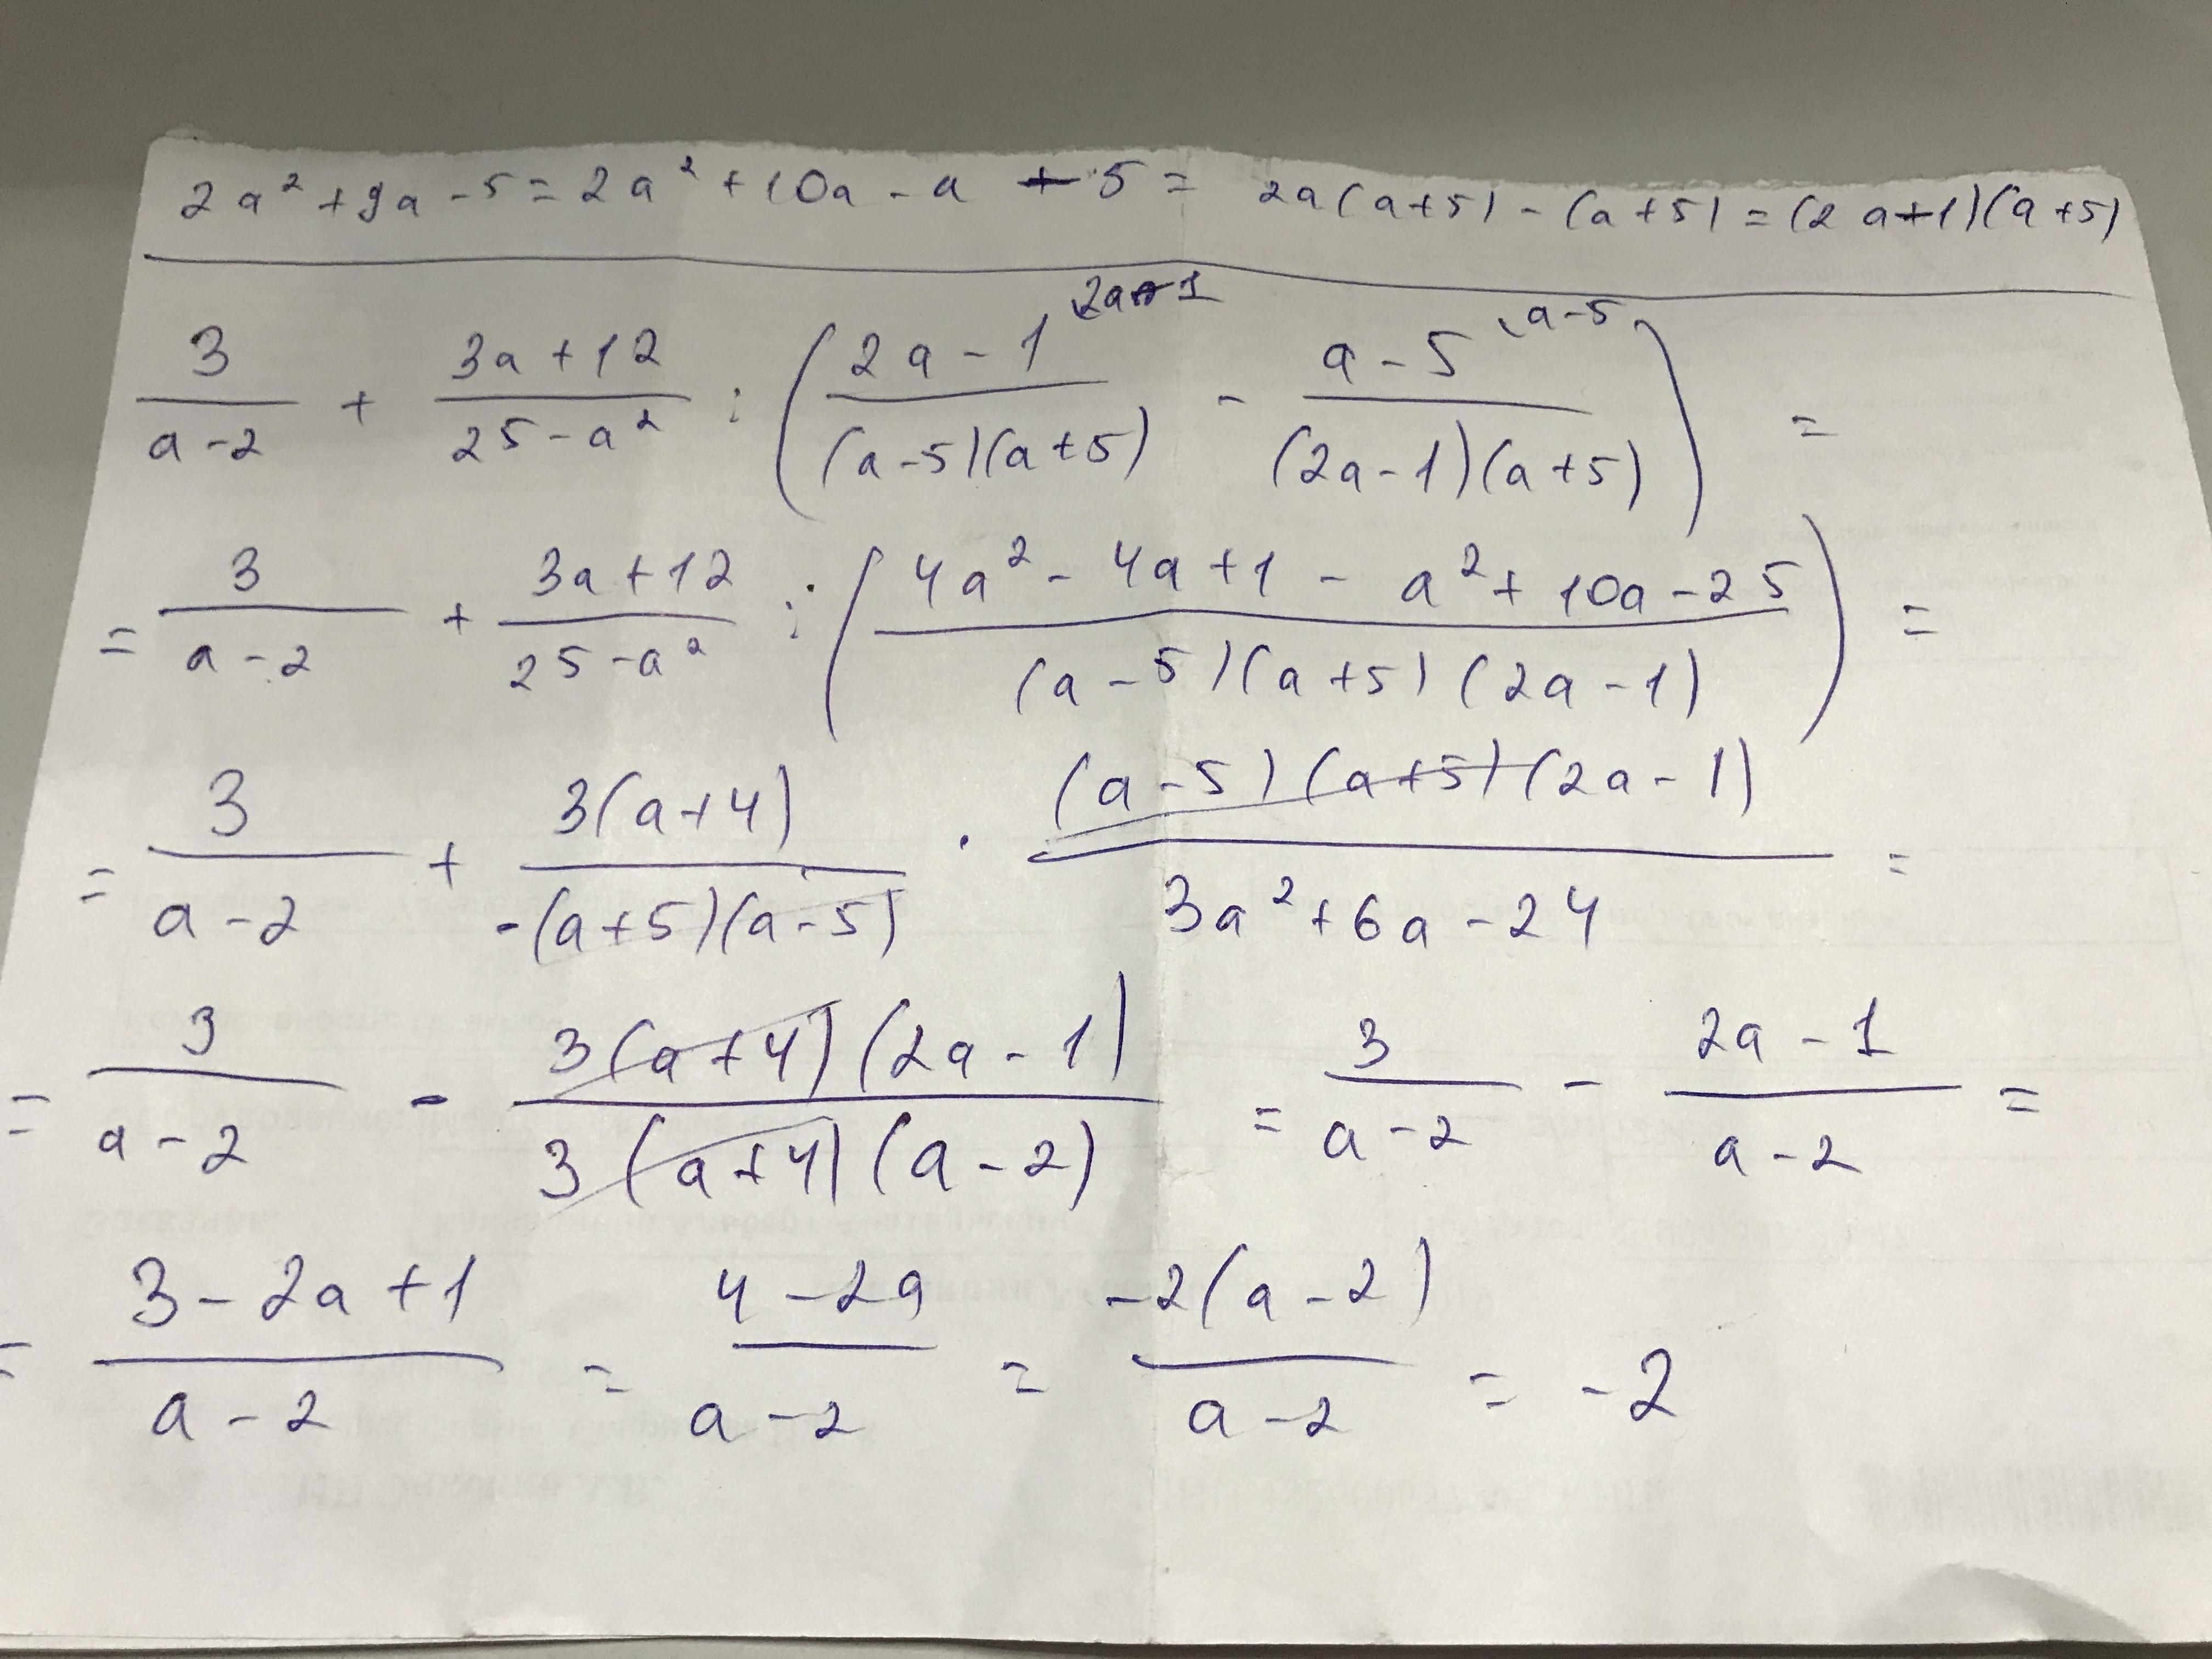 2a² + 9a - 5 = 2a² + 10a - a - 5 = 2a(a+5) - (a+5) = (2a-1)(a+5)
3/(a-2) + (3a+12)/(25-a²) : ((2a-1)^(\2a-1)/((a-5)(a+5)) - (a-5)^(\a-5)/((2a-1)(a+5))) =
= 3/(a-2) + (3a+12)/(25-a²) : ((4a² - 4a + 1 - a² + 10a - 25)/((a-5)(a+5)(2a-1))) =
= 3/(a-2) + 3(a+4)/(-(a+5)(a-5)) · (a-5)(a+5)(2a-1)/(3a² + 6a - 24) =
= 3/(a-2) - 3(a+4)(2a-1)/(3(a+4)(a-2)) = 3/(a-2) - (2a-1)/(a-2) =
= (3-2a+1)/(a-2) = (4-2a)/(a-2) = -2(a-2)/(a-2) = -2